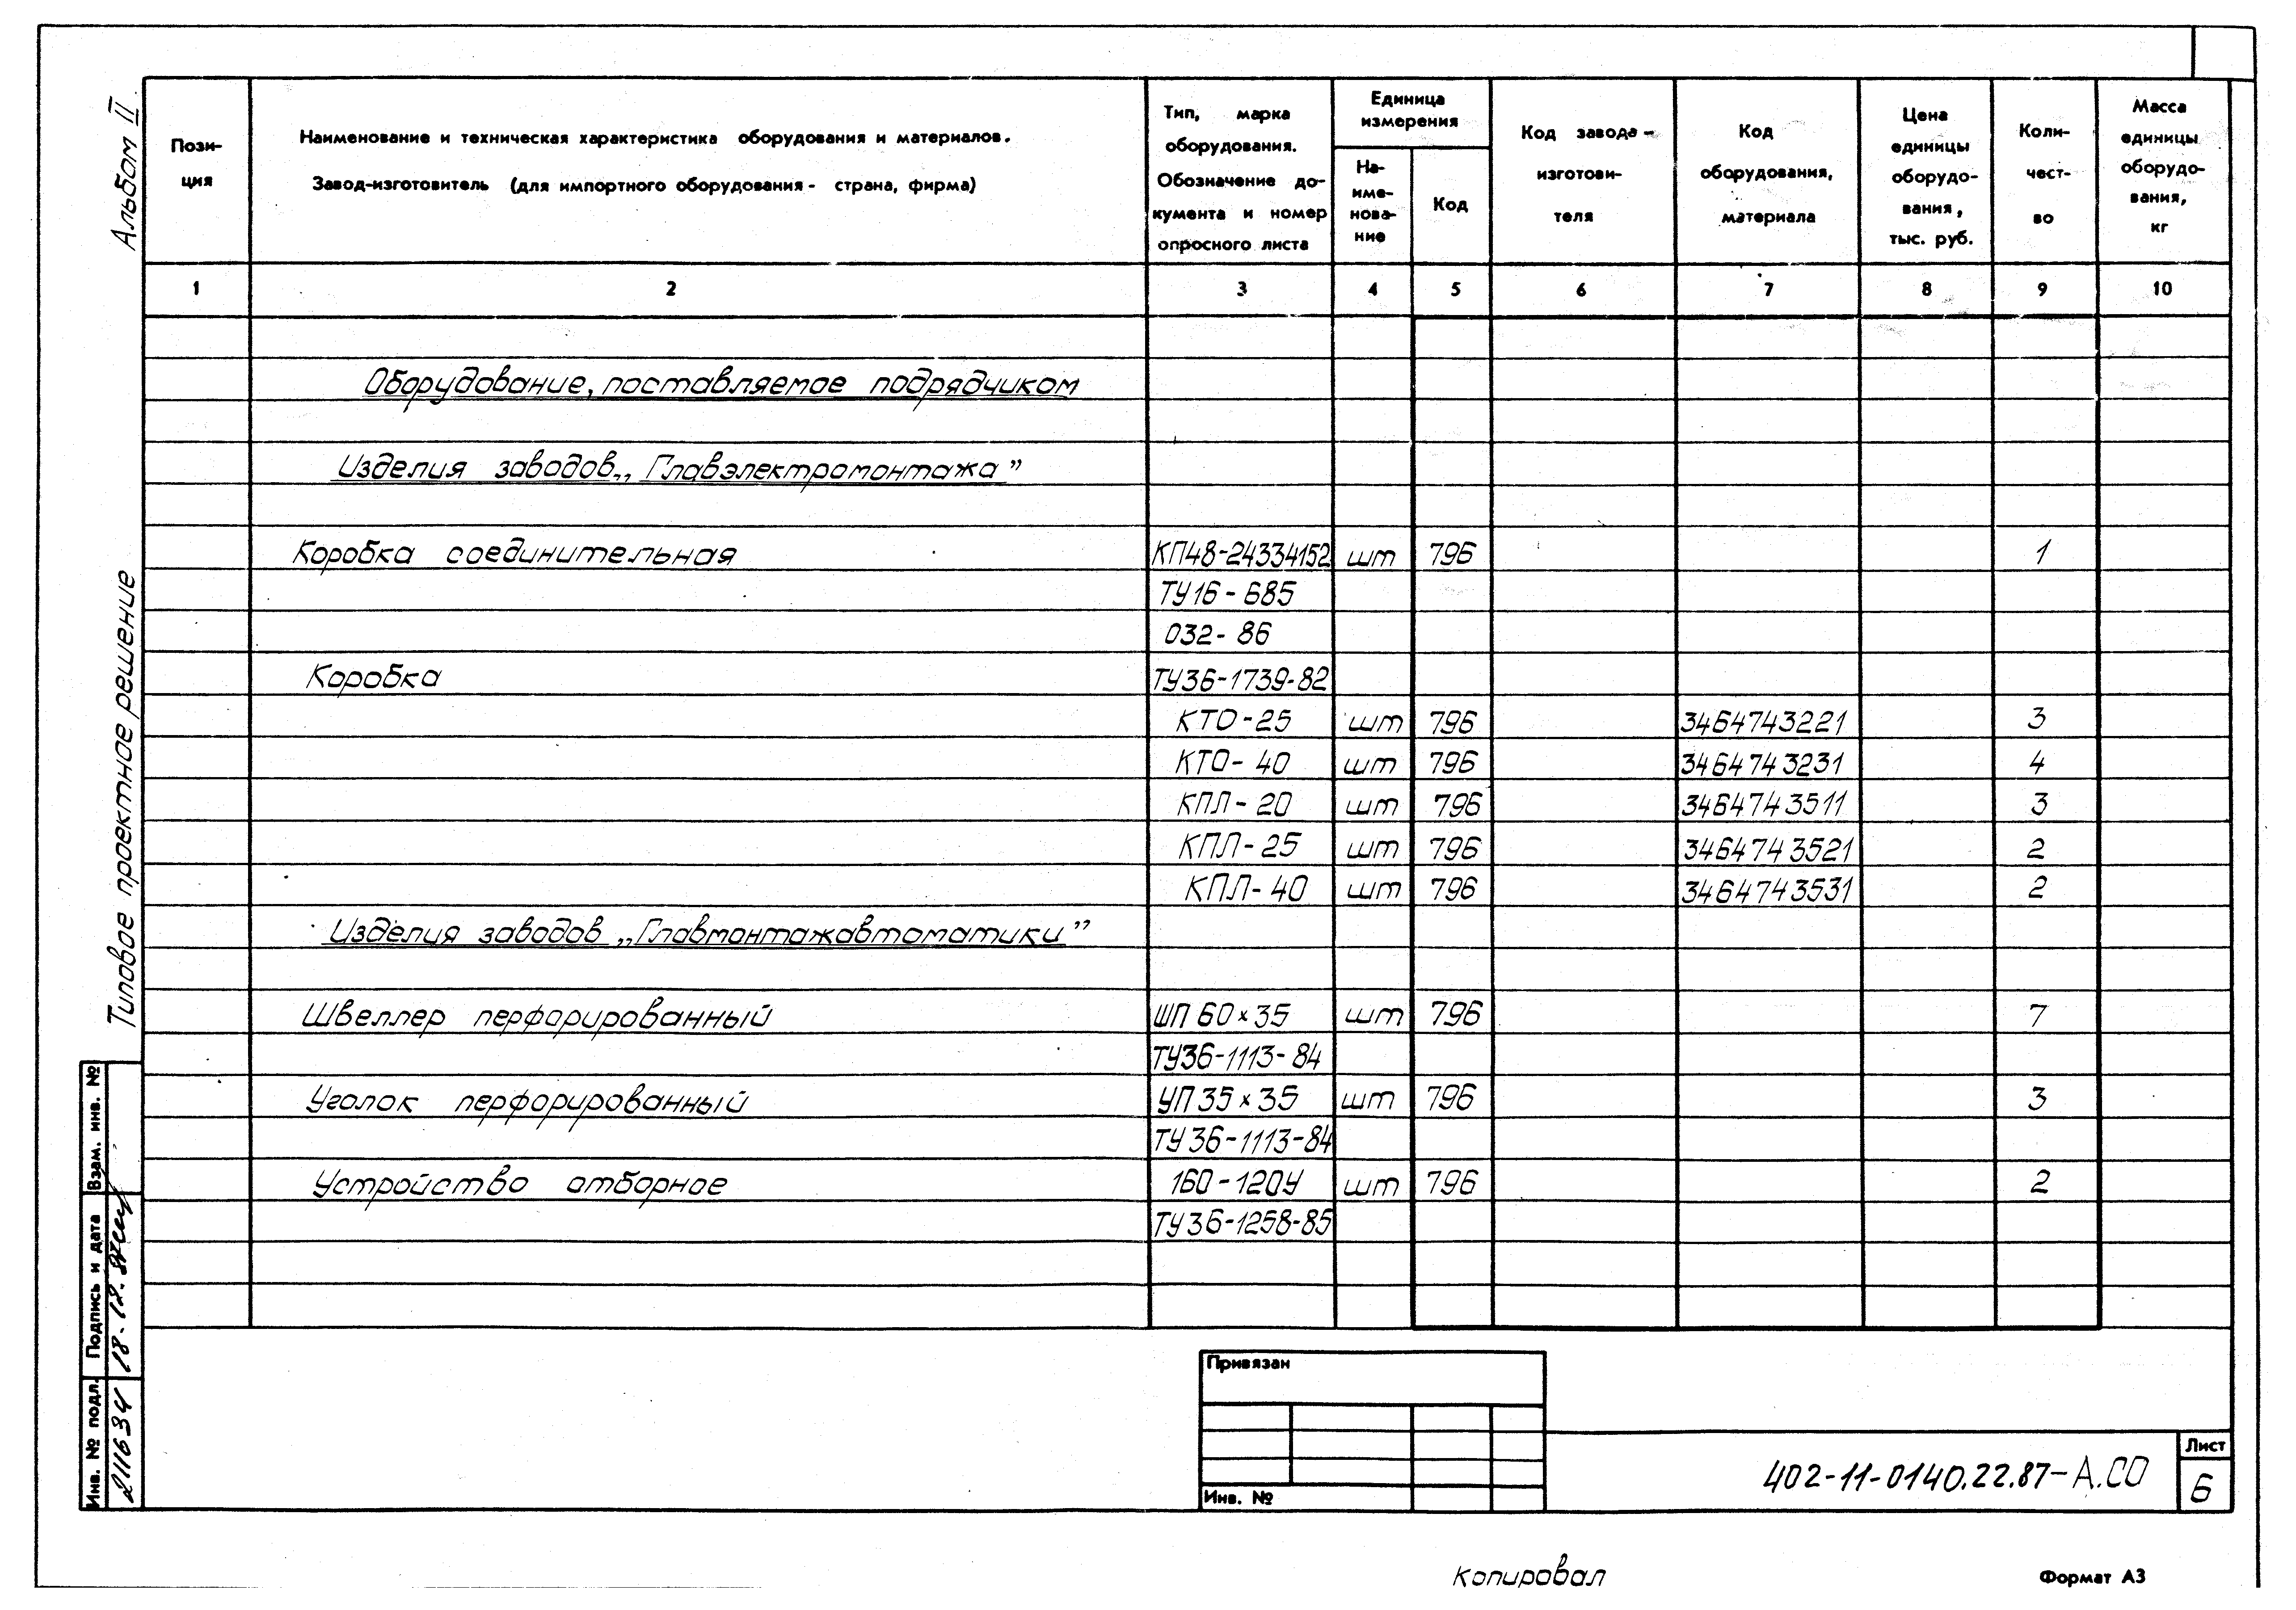 Альбом II
Типовое проектное решение
Пози-
ция
Наименование и техническая характеристика оборудования и материалов.
Завод-изготовитель (для импортного оборудования - страна, фирма)
Тип, марка
оборудования.
Обозначение до-
кумента и номер
опросного листа
Единица
измерения
На-
име-
нова-
ние
Код
Код завода-
изготови-
теля
Код
оборудования,
материала
Цена
единицы
оборудо-
вания,
тыс. руб.
Коли-
чест-
во
Масса
единицы
оборудо-
вания,
кг
1 2 3 4 5 6 7 8 9 10
Оборудование, поставляемое подрядчиком
Изделия заводов „Главэлектромонтажа”
Коробка соединительная КП48-24334152 шт 796 1
ТУ16-685
032-86
Коробка ТУ36-1739-82
КТО-25 шт 796 3464743221 3
КТО-40 шт 796 3464743231 4
КПЛ-20 шт 796 3464743511 3
КПЛ-25 шт 796 3464743521 2
КПЛ-40 шт 796 3464743531 2
Изделия заводов „Главмонтажавтоматики”
Швеллер перфорированный ШП 60×35 шт 796 7
ТУ36-1113-84
Уголок перфорированный УП 35×35 шт 796 3
ТУ36-1113-84
Устройство отборное 160-120У шт 796 2
ТУ36-1258-85
Взам. инв. №
Подпись и дата
18.12.87
Инв. № подл.
211634
Привязан
Инв. №
402-11-0140.22.87-А.СО
Лист
6
Копировал
Формат А3